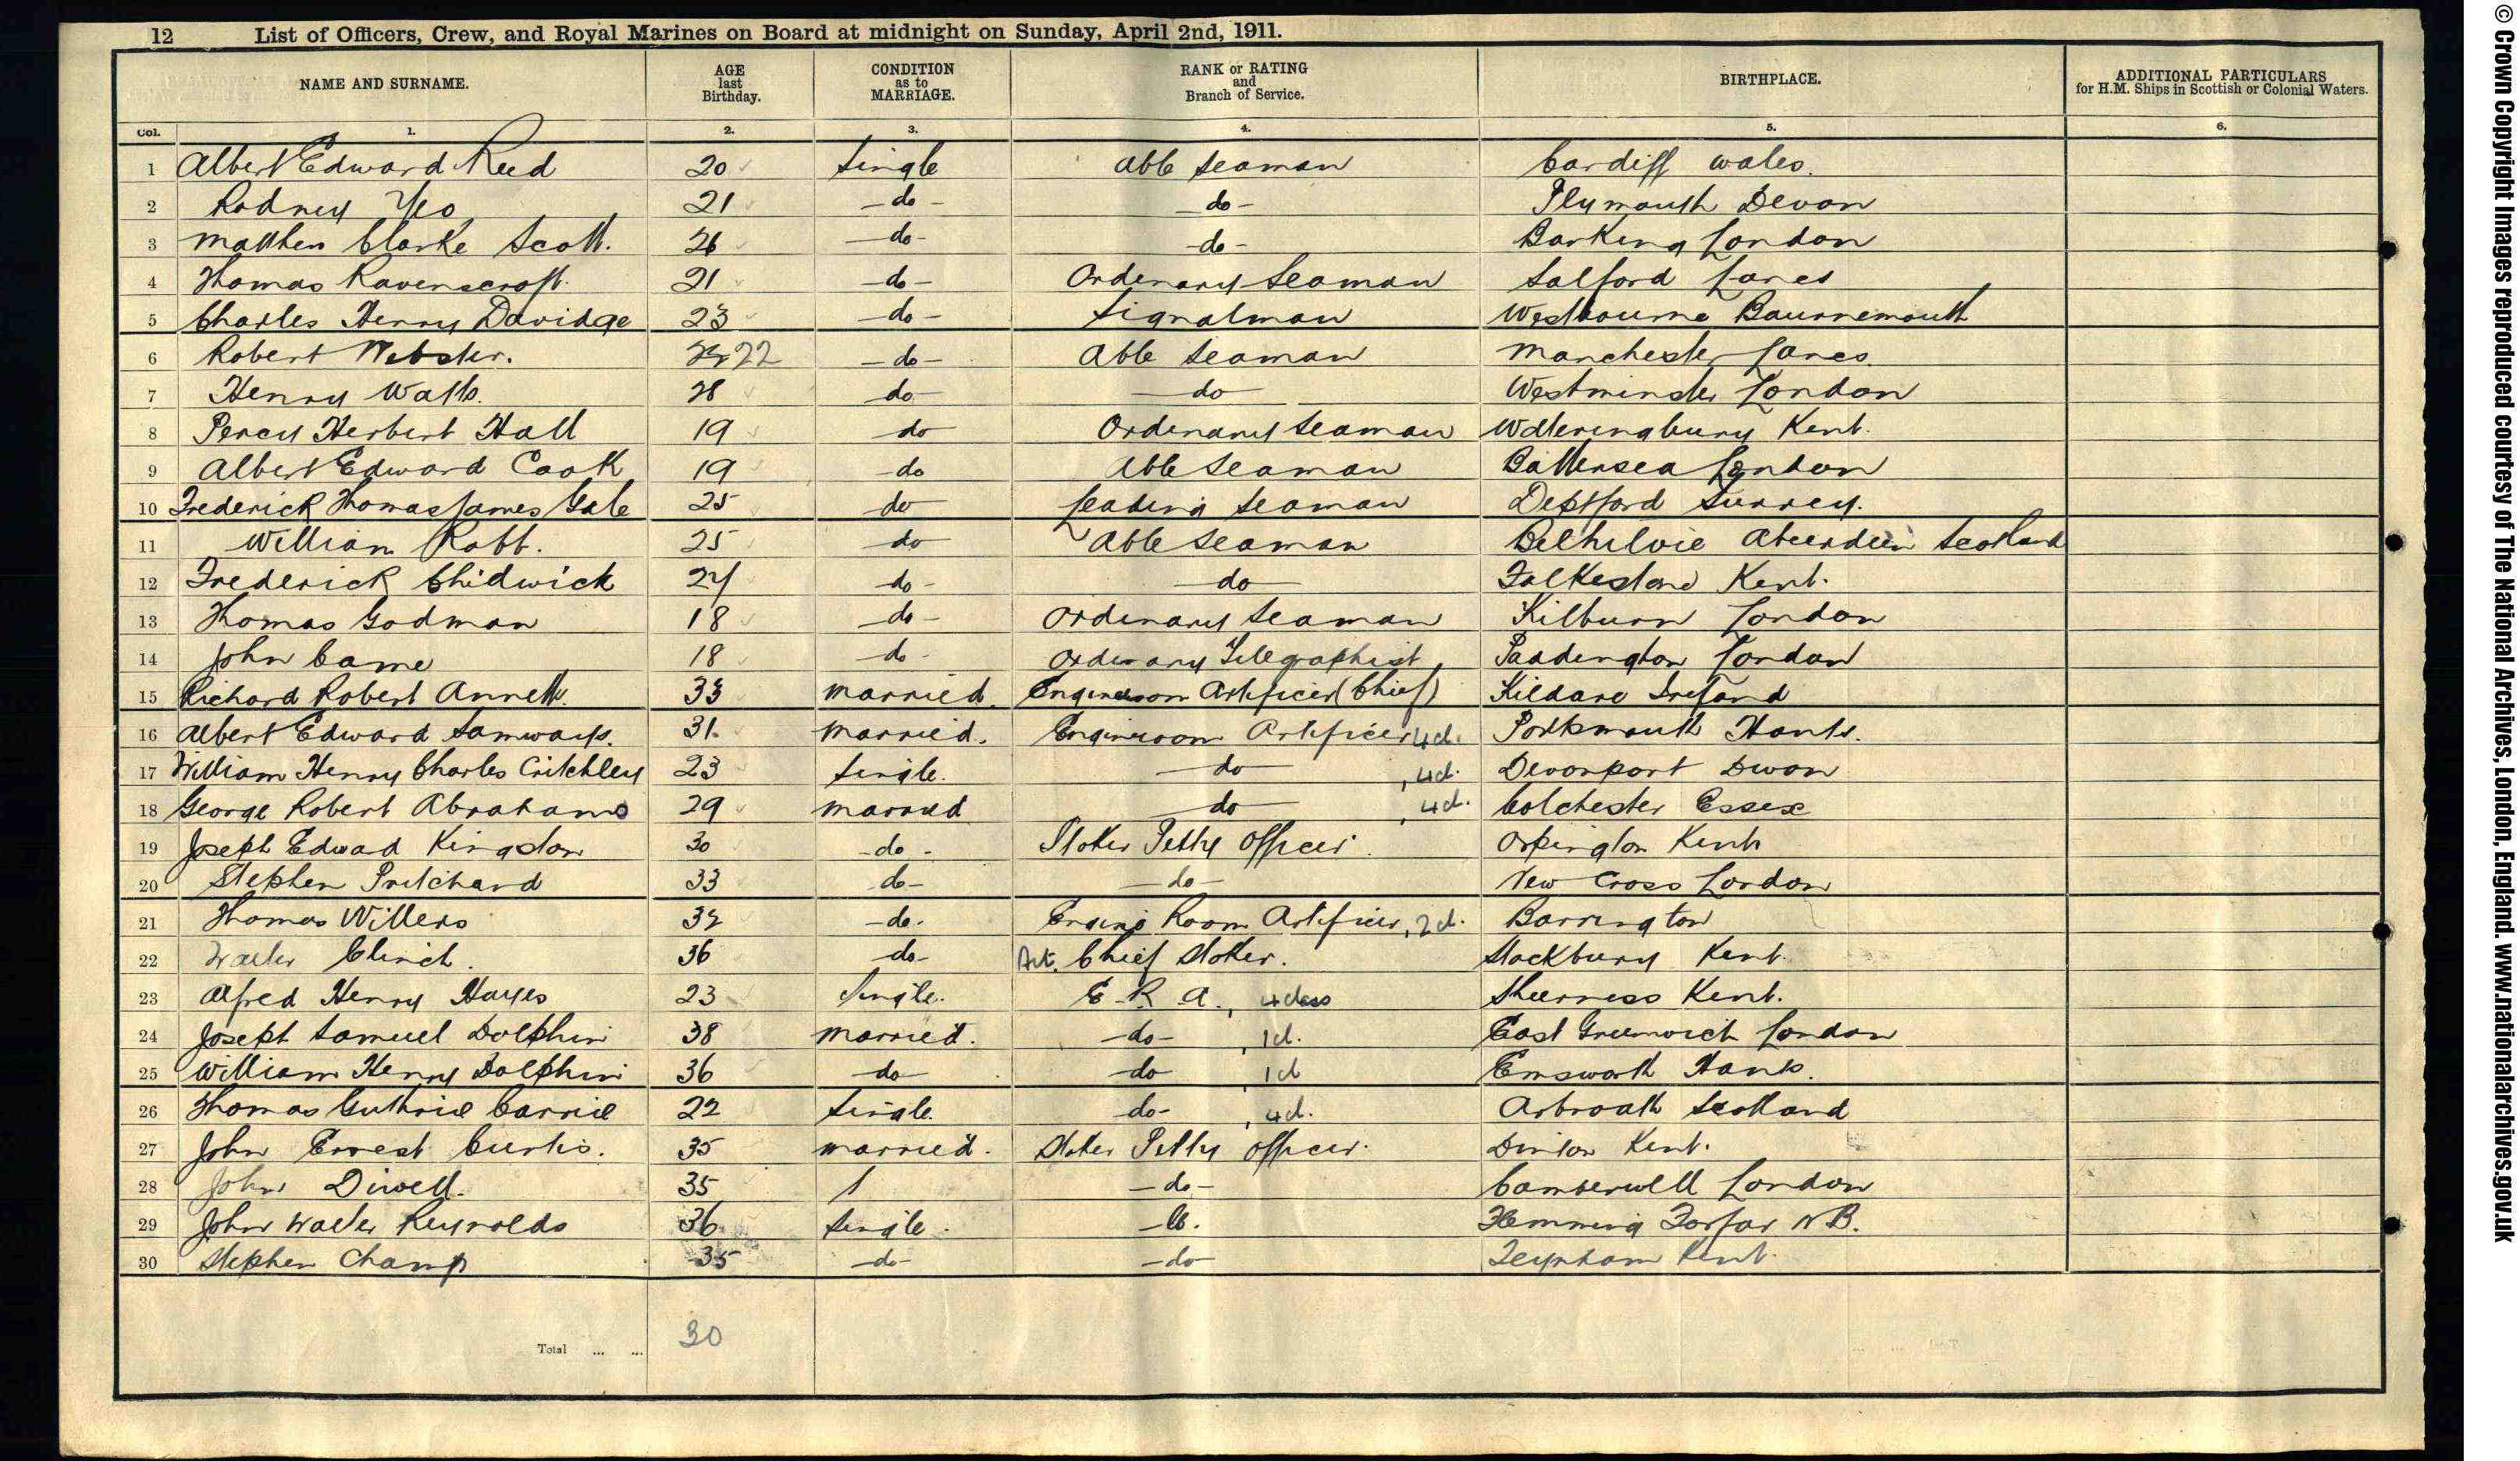 12 List of Officers, Crew, and Royal Marines on Board at midnight on Sunday, April 2nd, 1911.
NAME AND SURNAME. AGE last Birthday. CONDITION as to MARRIAGE. RANK or RATING and Branch of Service. BIRTHPLACE. ADDITIONAL PARTICULARS for H.M. Ships in Scottish or Colonial Waters.
Col. 1. 2. 3. 4. 5. 6.
1 Albert Edward Reed 20 Single Able Seaman Cardiff Wales.
2 Rodney Yeo 21 -do- -do- Plymouth Devon
3 Matthew Clarke Scott. 26 -do- -do- Barking London
4 Thomas Ravenscroft. 21 -do- Ordinary Seaman Salford Lancs
5 Charles Henry Davidge 23 -do- Signalman Westbourne Bournemouth
6 Robert Webster. 22 -do- Able Seaman Manchester Lancs.
7 Henry Watts. 28 do do Westminster London
8 Percy Herbert Hall 19 do Ordinary Seaman Watteringbury Kent.
9 Albert Edward Cook 19 do Able Seaman Battersea London
10 Frederick Thomas James Gale 25 do Leading Seaman Deptford Surrey.
11 William Robb. 25 do Able Seaman Belhelvie Aberdeen Scotland
12 Frederick Chidwick 24 do- do Folkestone Kent.
13 Thomas Godman 18 -do- Ordinary Seaman Kilburn London
14 John Came 18 do- Ordinary Telegraphist Paddington London
15 Richard Robert Annett. 33 Married. Engineroom Artificer (Chief) Kildare Ireland
16 Albert Edward Samways. 31. Married. Engineroom Artificer 4cl. Portsmouth Hants.
17 William Henry Charles Critchley 23 Single. do , 4cl. Devonport Devon
18 George Robert Abrahams 29 Married do , 4cl. Colchester Essex
19 Joseph Edward Kingston 30 -do- Stoker Petty Officer. Orpington Kent
20 Stephen Pritchard 33 do- -do- New Cross London
21 Thomas Willers 32 -do. Engine Room Artificer, 2cl. Barrington
22 Walter Clinch. 36 do- Act. Chief Stoker. Stockbury Kent.
23 Alfred Henry Hayes 23 Single. E R A, 4class Sheerness Kent.
24 Joseph Samuel Dolphin 38 Married. -do- , 1cl. East Greenwich London
25 William Henry Dolphin 36 do do , 1cl Emsworth Hants.
26 Thomas Guthrie Carrie 22 Single. do- , 4cl. Arbroath Scotland
27 John Ernest Curtis. 35 Married. Stoker Petty Officer. Kent.
28 John Diwell. 35 -do- Camberwell London
29 John Walter Reynolds 36 Single. Forfar N B.
30 Stephen Champ 35 -do- -do Teynham Kent.
Total ... ... 30
© Crown Copyright Images reproduced courtesy of The National Archives, London, England. www.nationalarchives.gov.uk